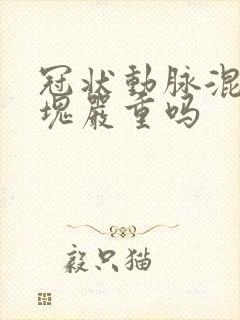 冠状動脉混
塊嚴重吗
毅只猫